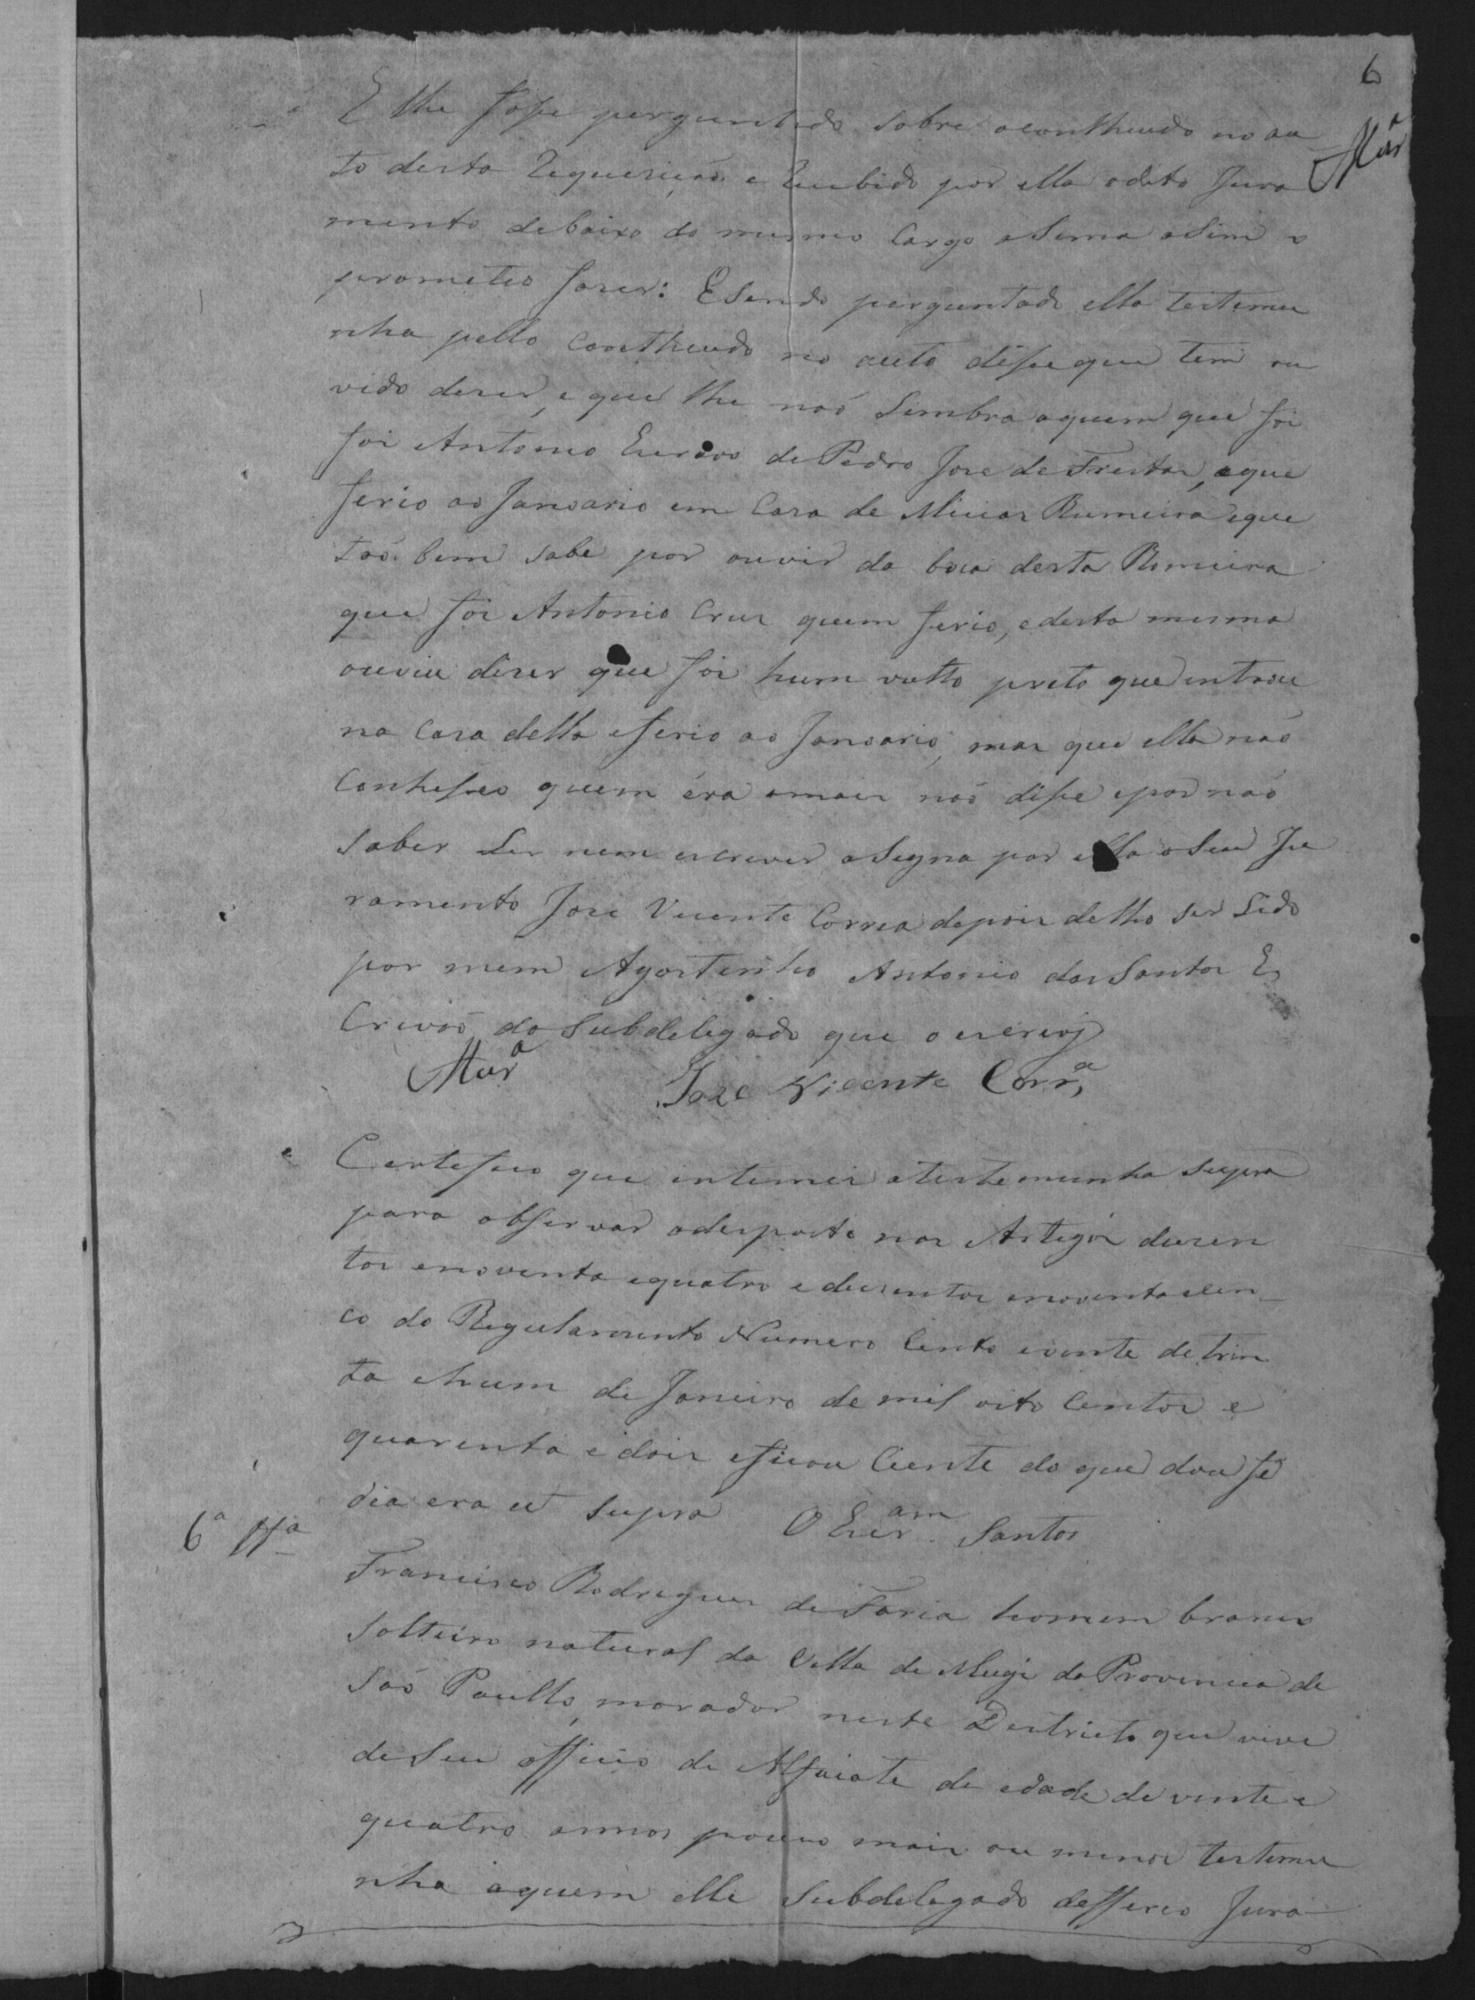 6
E lhe fosse perguntado sobre o conthiudo no au
to desta Requerição e Recebido por ella o dito Jura
mento debaixo do mesmo Cargo asima asim o
prometeo faser: E sendo perguntado ella testemu
nha pello Conthiudo no auto disse que tem ou
vido diser, e que lhe naó Lembra aquem que foi
foi Antonio Escravo de Pedro Jose de Freitas, eque
ferio ao Januario em Casa de Rumeira eque
taó bem sabe por ouvir da boca desta Romeira
que foi Antonio Crus quem ferio, e desta mesma
ouviu diser que foi hum vulto preto que entrou
na Casa della e ferio ao Januario, mas que ella naó
Conhesseo quem éra e mais naó disse e por naó
saber Ler nem escrever asigna por ella o seu Ju
ramento Jose Vicente Correa depois de lho ser Lido
por mim Agostinho Antonio dos Santos Es
Crivaó do Subdelegado que o escrevi
Joze Vicente Corr.ª
Certefico que intimei a testemunha supra
para observar o desposto nos Artigos dusen
tos enoventa equatro e dusentos enoventa ecin
co do Regulamento Numero Cento evinte de trin
ta ehum de Janeiro de mil oito Centos e
quarenta e dois eficou Ciente do que dou fé
dia era ut supra O Escr.am Santos
6ª ttª
Francisco Rodrigues de Faria homem branco
solteiro natural da Villa de Mugi da Provincia de
Saó Paullo, morador neste Destricto que vive
de seu officio de Alfaiate de edade de vinte e
quatro annos pouco mais ou menos testemu
nha aquem elle Subdelegado defferio Jura